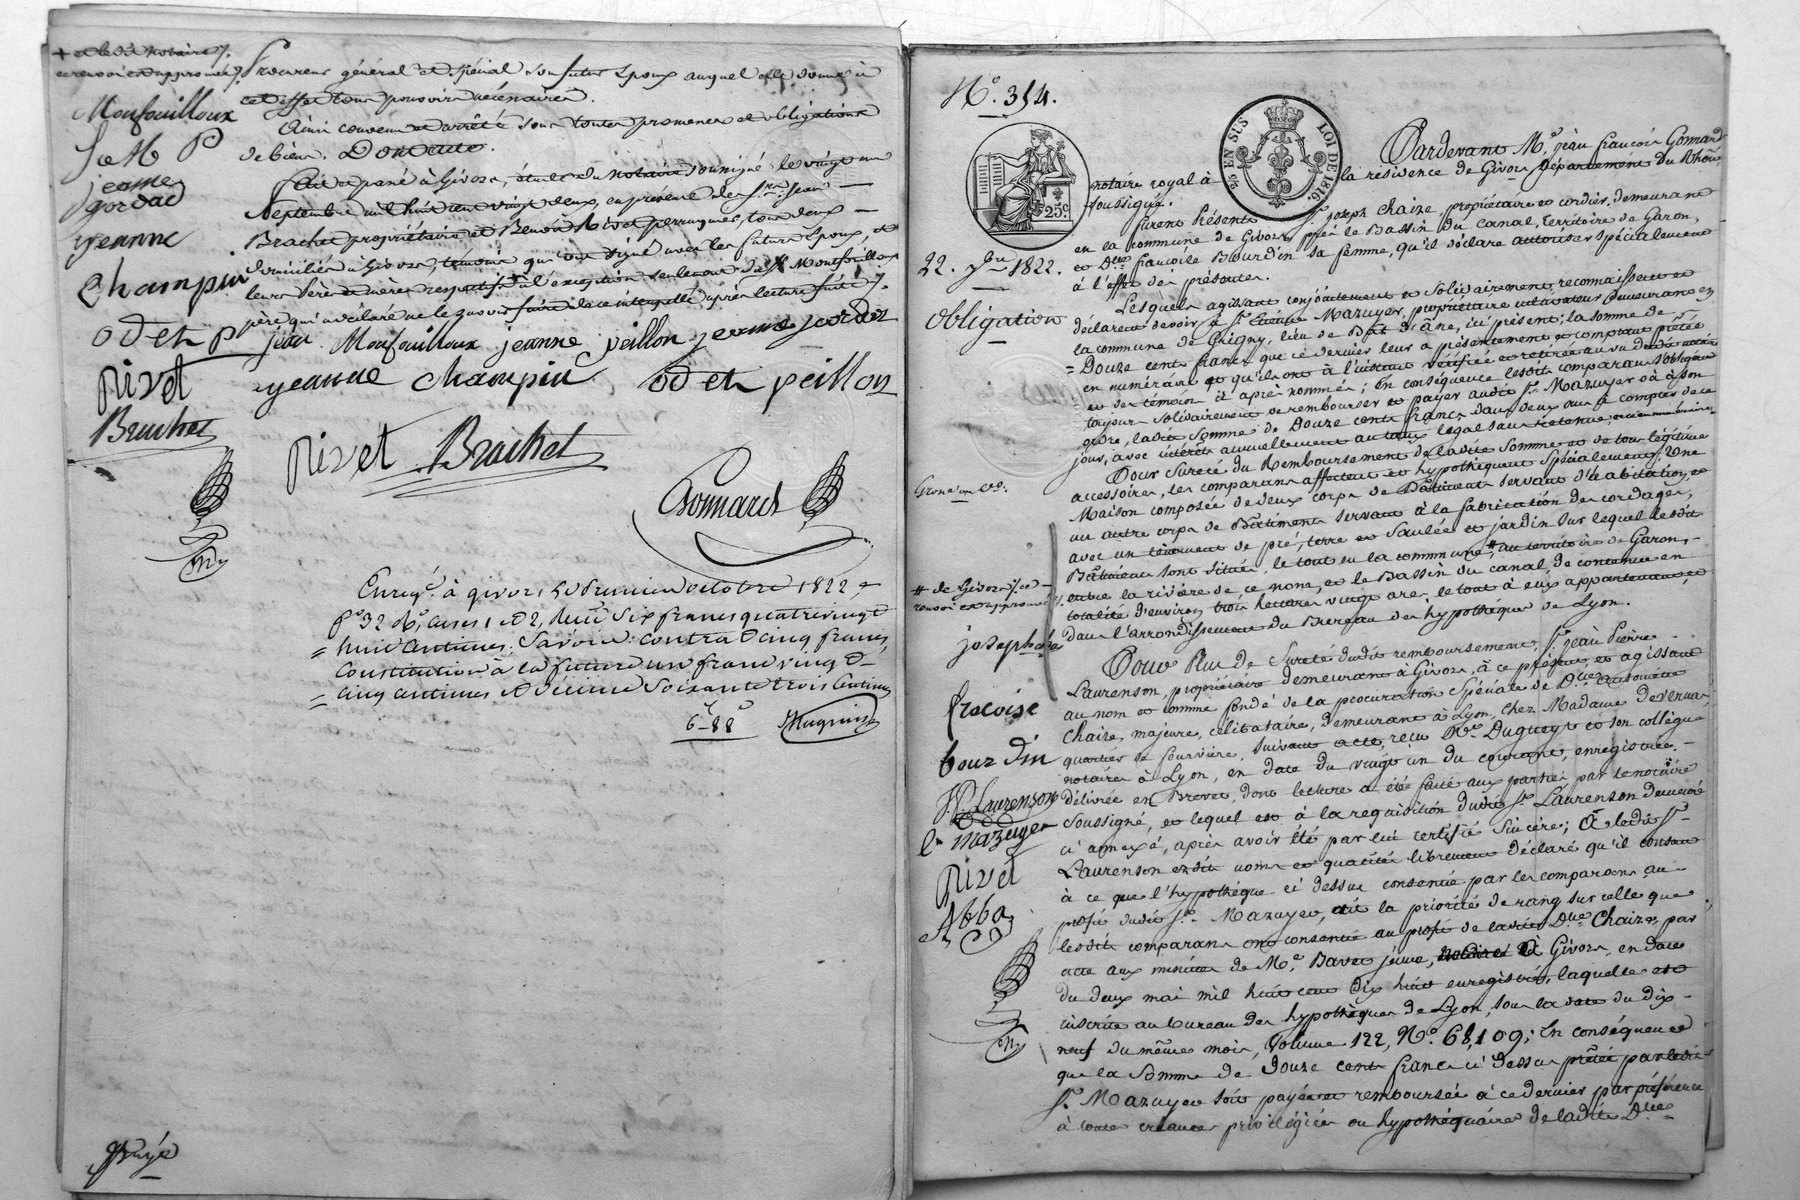 + et ledit notaire /.
ce renvoi est approuvé /.
Procureur général et spécial son futur époux auquel elle donne à
cet effet tous pouvoirs nécessaires.
Ainsi convenu et arrêté sous toutes promesses et obligations
de biens. Dont acte.
Fait et passé à Givors, étude du notaire soussigné, le vingt un
Septembre mil huit cent vingt deux, en présence des Srs. Jean
Brachet propriétaire et Benoit Rivet perruquier, tous deux
domiciliés à Givors, témoins qui ont signé avec les futurs époux, et
leurs pères et mères respectifs à l'exception seulement du Sr. Montfouilloux
père qui a déclaré ne le savoir faire de ce interpellé après lecture faite /.
Monfouilloux
J M P
jeanne
jordad
yeanne
Champin
odet P
Rivet
Brachet
jean Monfouilloux jeanne peillon jeanne jordez
yeanne Champin odet peillon
Rivet Brachet
Gonnard
Enregé. à Givors le premier octobre 1822
fo. 32 Ro. cases 1 et 2, Reçu six francs quatre vingt
huit centimes, savoir: contrat cinq francs,
Constitution à la future un franc vingt
cinq centimes et décime soixante trois centimes
6-88
Hugnin
Payé
No. 354.
25 EN SUS LOI DE 1816
25c.
Pardevant Me. Jean François Gonnard
notaire royal à la résidence de Givors Département du Rhône
soussigné.
Furent Présents Sr. Joseph Chaize, propriétaire et cordier, demeurant
en la commune de Givors près le Bassin du canal, territoire de Garon,
et Dme. Françoise Bourdin sa femme, qu'il déclare autoriser spécialement
à l'effet des présentes.
22. 7bre 1822.
Obligation
Lesquels agissant conjointement et solidairement, reconnaissent et
déclarent devoir à Sr. Etienne Mazuyer, propriétaire cultivateur demeurant en
la commune de Grigny, lieu de Bât d'âne, ici présent; la somme de
Douze cents francs que ce dernier leur a présentement et comptant prêtée
en numéraire et qu'ils ont à l'instant vérifiée et retirée au vu dudit notaire
et des témoins ci après nommés; En conséquence lesdits comparans s'obligent
toujours solidairement de rembourser et payer audit Sr. Mazuyer ou à son
ordre, ladite somme de Douze cents francs dans deux ans à compter de ce
jour, avec intérêts annuellement au taux légal sans retenue,
Pour sureté du Remboursement de ladite somme et de tous légitimes
accessoires, les comparans affectent et hypothèquent spécialement, Une
Maison composée de deux corps de Bâtiments servant d'habitation, et
un autre corps de Bâtiment servant à la fabrication des cordages,
avec un tènement de pré, terre et Saulée et jardin sur lequel lesdits
Bâtiments sont situés; le tout en la commune # au territoire de Garon,
entre la rivière de, ce nom, et le Bassin du canal, de contenue en
totalité d'environ trois hectares vingt ares, le tout à eux appartenant, et
dans l'arrondissement du Bureau des hypothèques de Lyon.
Grosse
# de Givors /. ce
renvoi est approuvé /.
joseph
Pour Plus de Sureté dudit remboursement, Sr. Jean Pierre
Laurenson, propriétaire demeurant à Givors, à ce présent et agissant
au nom et comme fondé de la procuration spéciale de Dlle. Antoinette
Chaize, majeure, célibataire, demeurant à Lyon, chez Madame de Vernas,
quartier de Fourvière, suivant acte, reçu Me. Dugueyt et son collègue
notaires à Lyon, en date du vingt un du courant, enregistrée,
délivrée en Brevet, dont lecture a été faite aux parties par le notaire
soussigné, et lequel est à la requisition dudit Sr. Laurenson demeuré
ci annexé, après avoir été par lui certifié sincère; A ledit Sr.
Laurenson esdits noms et qualités librement déclaré qu'il consent
à ce que l'hypothèque ci dessus consentie par les comparans au
profit dudit Sr. Mazuyer, ait la priorité de rang sur celle que
lesdits comparans ont consentie au profit de ladite Dlle. Chaize, par
acte aux minutes de Me. Bavet jeune, notaire à Givors, en date
du deux mai mil huit cent dix huit enregistré, laquelle est
inscrite au bureau des hypothèques de Lyon, sous la date du dix
neuf du même mois, Volume 122, No. 68,109; En conséquence
que la somme de Douze cents francs ci dessus prêtée par ledit
Sr. Mazuyer soit payée et remboursée à ce dernier par préférence
à toutes créances privilégiées ou hypothéquaires de ladite Dlle.
fracoise
bourdin
J P Laurenson
Mazuyer
Rivet
Abba